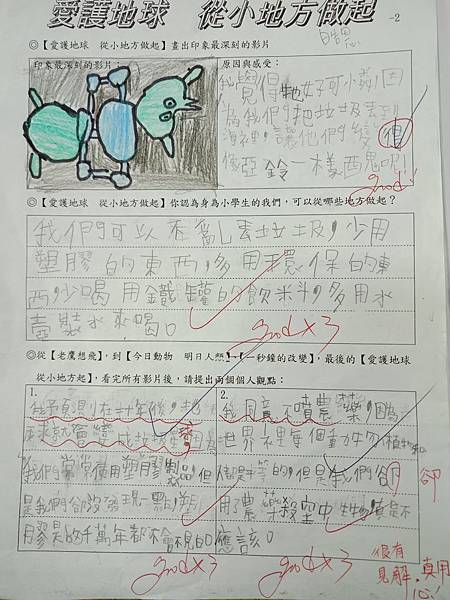 愛護地球 從小地方做起
-2
◎【愛護地球 從小地方做起】畫出印象最深刻的影片
印象最深刻的影片：
原因與感受：
我覺得牠好可憐！因
為我們把垃圾丟到
海裡，讓他們變得
像亞鈴一樣
good!
◎【愛護地球 從小地方做起】你認為身為小學生的我們，可以從哪些地方做起？
我們可以不亂丟垃圾，少用
塑膠的東西，多用環保的東
西，少喝用鐵罐的飲料，多用水
壺裝水來喝。
goodx3
◎從【老鷹想飛】，到【今日動物 明日人類】、【一秒鐘的改變】，最後的【愛護地球
從小地方起】，看完所有影片後，請提出兩個個人觀點：
1.
我預測在十年後，
球就會變成垃圾
我們常常使用塑膠製品，但
是我們卻沒發現一點，塑
膠是的千萬年都不會不見的。
goodx3
2.
我同意不噴農藥，因為
世界裡每個動物植物和
人都是平等的，但是我們卻
卻
用了農藥殺空中生物真是不
應該。
goodx3
很有
見解，真用
心！